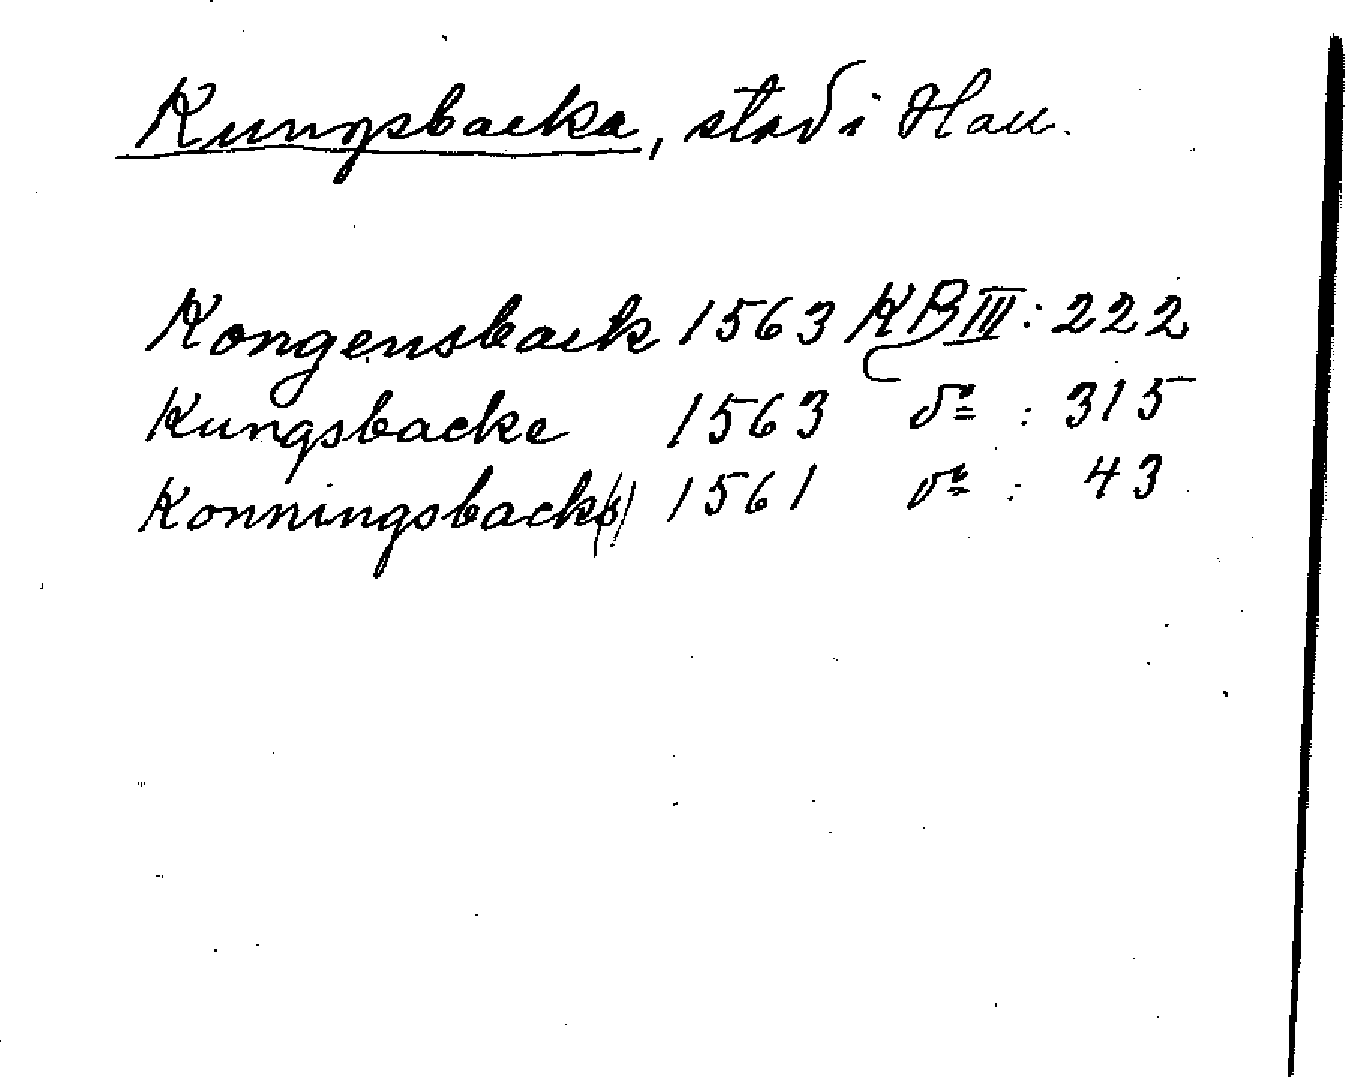 Kungsbacka, stad i Hall.
Kongensback 1563 KB III: 222
Kungsbacke 1563 do : 315
Konningsback(s) 1561 do : 43